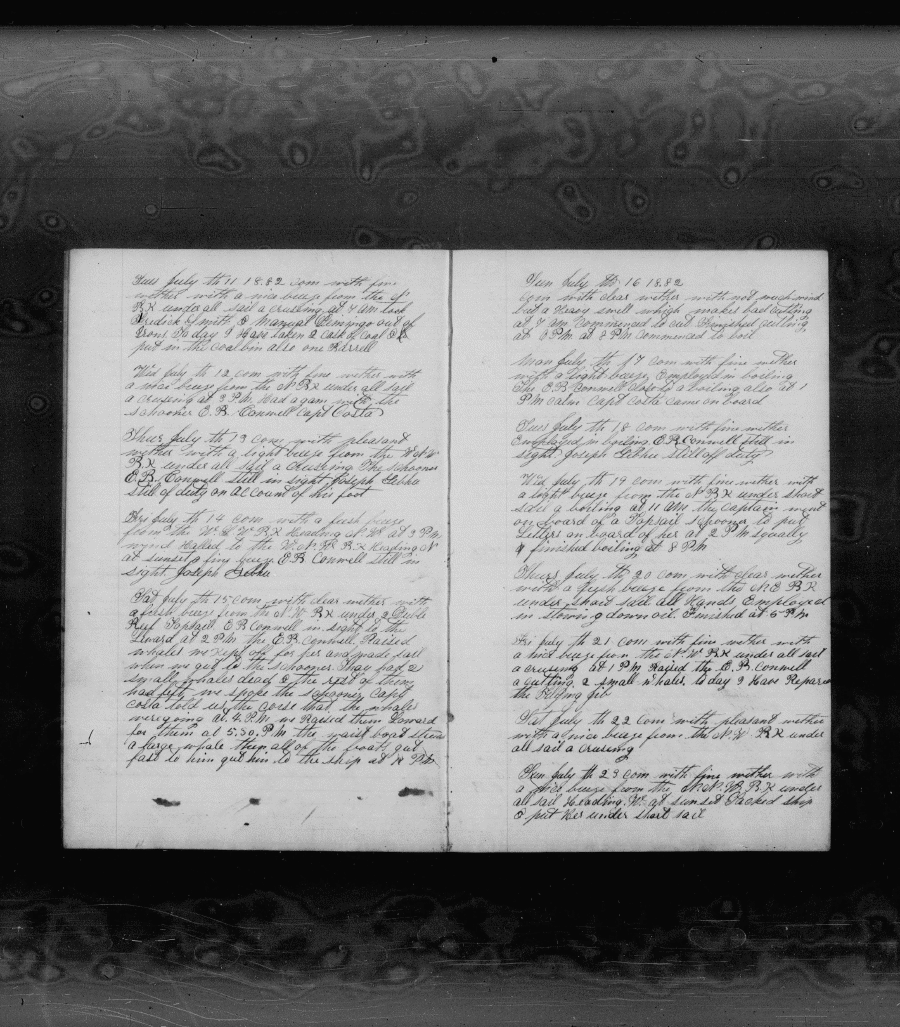 Tues July th 11 18.82 com with fine
wether with a nice breze from the
BK under all sail a cruising at 7 AM took
Fredick Smith & Manual Domingo out of
Irons To day I Have taken 2 Cask of Coal &
put in the coal bin also one Barrell
Wed July th 12 com with fine wether with
a nice breze from the N BK under all sail
a cruising at 3 PM Had a gam with the
schooner E.B. Conwell Capt Costa
Thurs July th 13 com with pleasant
wether with a light breze from the W N W
BK under all sail a cruising The schooner
E.B. Conwell still in sight Joseph Gebha
still of duty on account of his foot
Fri July th 14 com with a fresh breze
from the W S W BK Heading N W at 3 PM
wind Halled to the W.N.W. BK Heading N
at sunset a fine breze E.B Conwell still in
sight Joseph Gebha
Sat July th 15 com with clear wether with
a fresh breze from the N W BK under 2 Duble
Reef Topsail E.B Conwell in sight to the
Leward at 2 PM the E.B Conwell Raised
whales we Kept off for her and made sail
when we got to the schooner thay had 2
small whales dead & the rest of them
had left we spoke the schooner Capt
Costa told us the corse that the whales
were going at 4. P.M we Raised them Leward
for them at 5.30. P.M the waist boat struck
a large whale then all of the boats got
fast to him got him to the ship at 8 PM
Sun July th 16 18.82
com with clear wether with not much wind
but a Heavy swell which makes bad cutting
at 7 AM Commenced to cut Finished cutting
at 6 PM at 8 PM commenced to boil
Mon July th 17 com with fine wether
with a light breze Employed in boiling
The E.B Conwell close to a boiling also at 1
PM calm Capt Costa came on board
Tues July th 18 com with fine wether
Employed in boiling E.B Conwell still in
sight Joseph Gebha still off duty
Wed July th 19 com with fine wether with
a light breze from the N BK under short
sail a boiling at 11 AM the Captain went
on board of a Topsail Schooner to put
Letters on board of her at 2 PM squally
& finished boiling at 8 PM
Thurs July th 20 com with clear wether
with a fresh breze from the N.E BK
under short sail all Hands Employed
in stowing down oil. Finished at 5 PM
Fri July th 21 com with fine wether with
a nice breze from the N W BK under all sail
a cruising at 1 PM Raised the E.B Conwell
a cutting 2 small whales to day I Have Repared
the Flying Jib
Sat July th 22 com with pleasant wether
with a nice breze from the N W BK under
all sail a cruising
Sun July th 23 com with fine wether with
a nice breze from the N.N.W. BK under
all sail Heading W. at sunset Tacked ship
& put Her under short sail